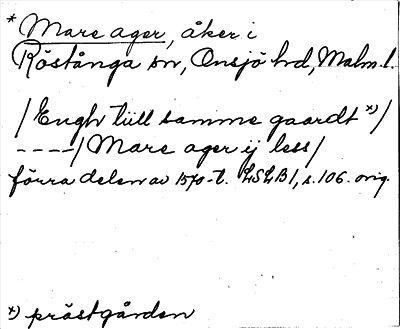 * Mare ager, åker i
Röstånga sn, Onsjö hd, Malm. l.
/Engh till samme gaardt *)/
----/Mare ager ij less/
förra delen av 1570-t. LSLB1, s. 106. orig.
*) prästgården